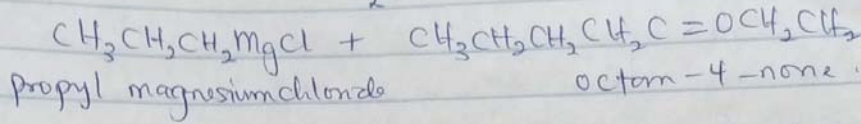 CH₃CH₂CH₂MgCl + CH₃CH₂CH₂CH₂C=OCH₂CH₂
propyl magnesiumchloride octan-4-none.